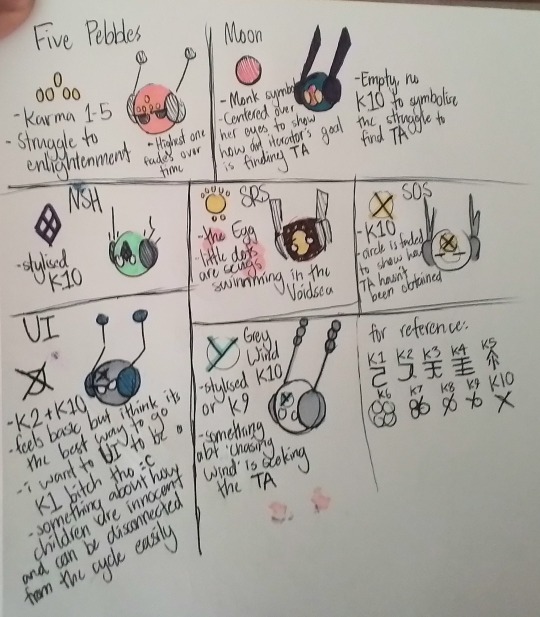 Five Pebbles
- Karma 1-5
- Struggle to
enlightenment
- Highest one
fades over
time
Moon
- Monk symbol
- Centered over
her eyes to show
how an iterator's goal
is finding TA
- Empty, no
K10 to symbolise
the struggle to
find TA
NSH
- stylised
K10
SRS
- the Egg
- little dots
are scugs
swimming in the
Voidsea
SOS
- K10
- circle is faded
to show how
TA hasn't
been obtained
UI
- K2 + K10
- feels basic but i think its
the best way to go
- i want to UI to be a
K1 bitch tho :C
- something about how
children are innocent
and can be disconnected
from the cycle easily
Grey
Wind
- stylised K10
or K9
- something
abt 'chasing
wind' is seeking
the TA
for reference:
K1 K2 K3 K4 K5
K6 K7 K8 K9 K10